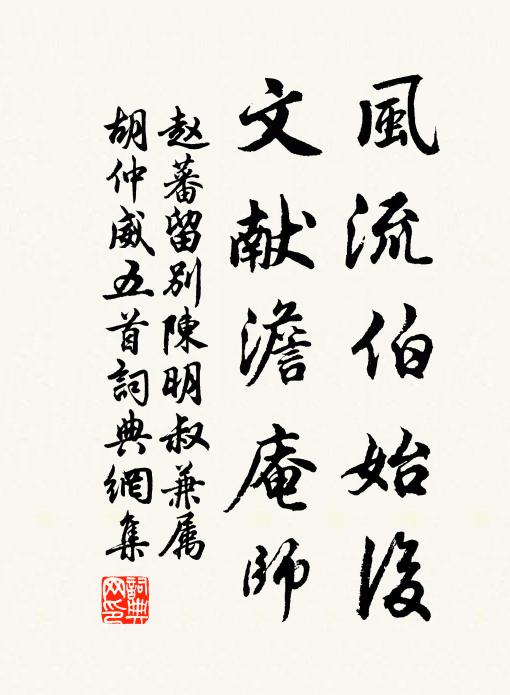 風流伯始後
文献澹庵師
赵蕃留别陳明叔兼属
胡仲威五首詞典網集
詞典网印